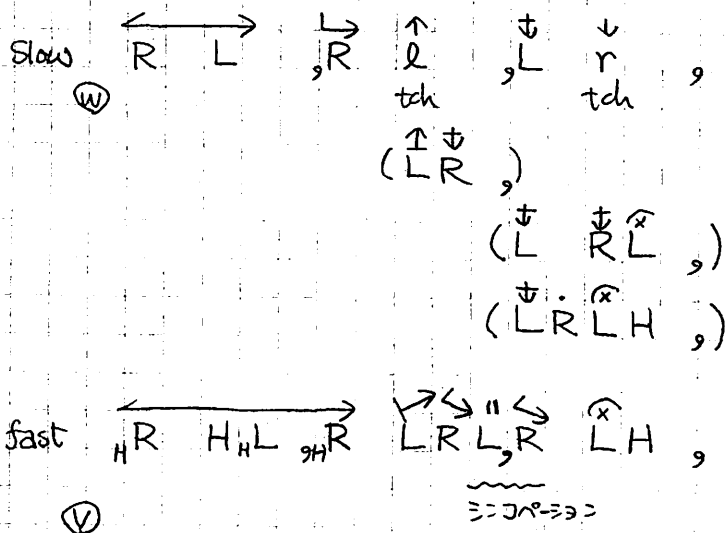 Slow R L ,R l ,L r ,
W tch tch
(L R ,)
(L R L ,)
(L R L H ,)
fast HR HHL ,HR L R L,R L H ,
V シンコペーション